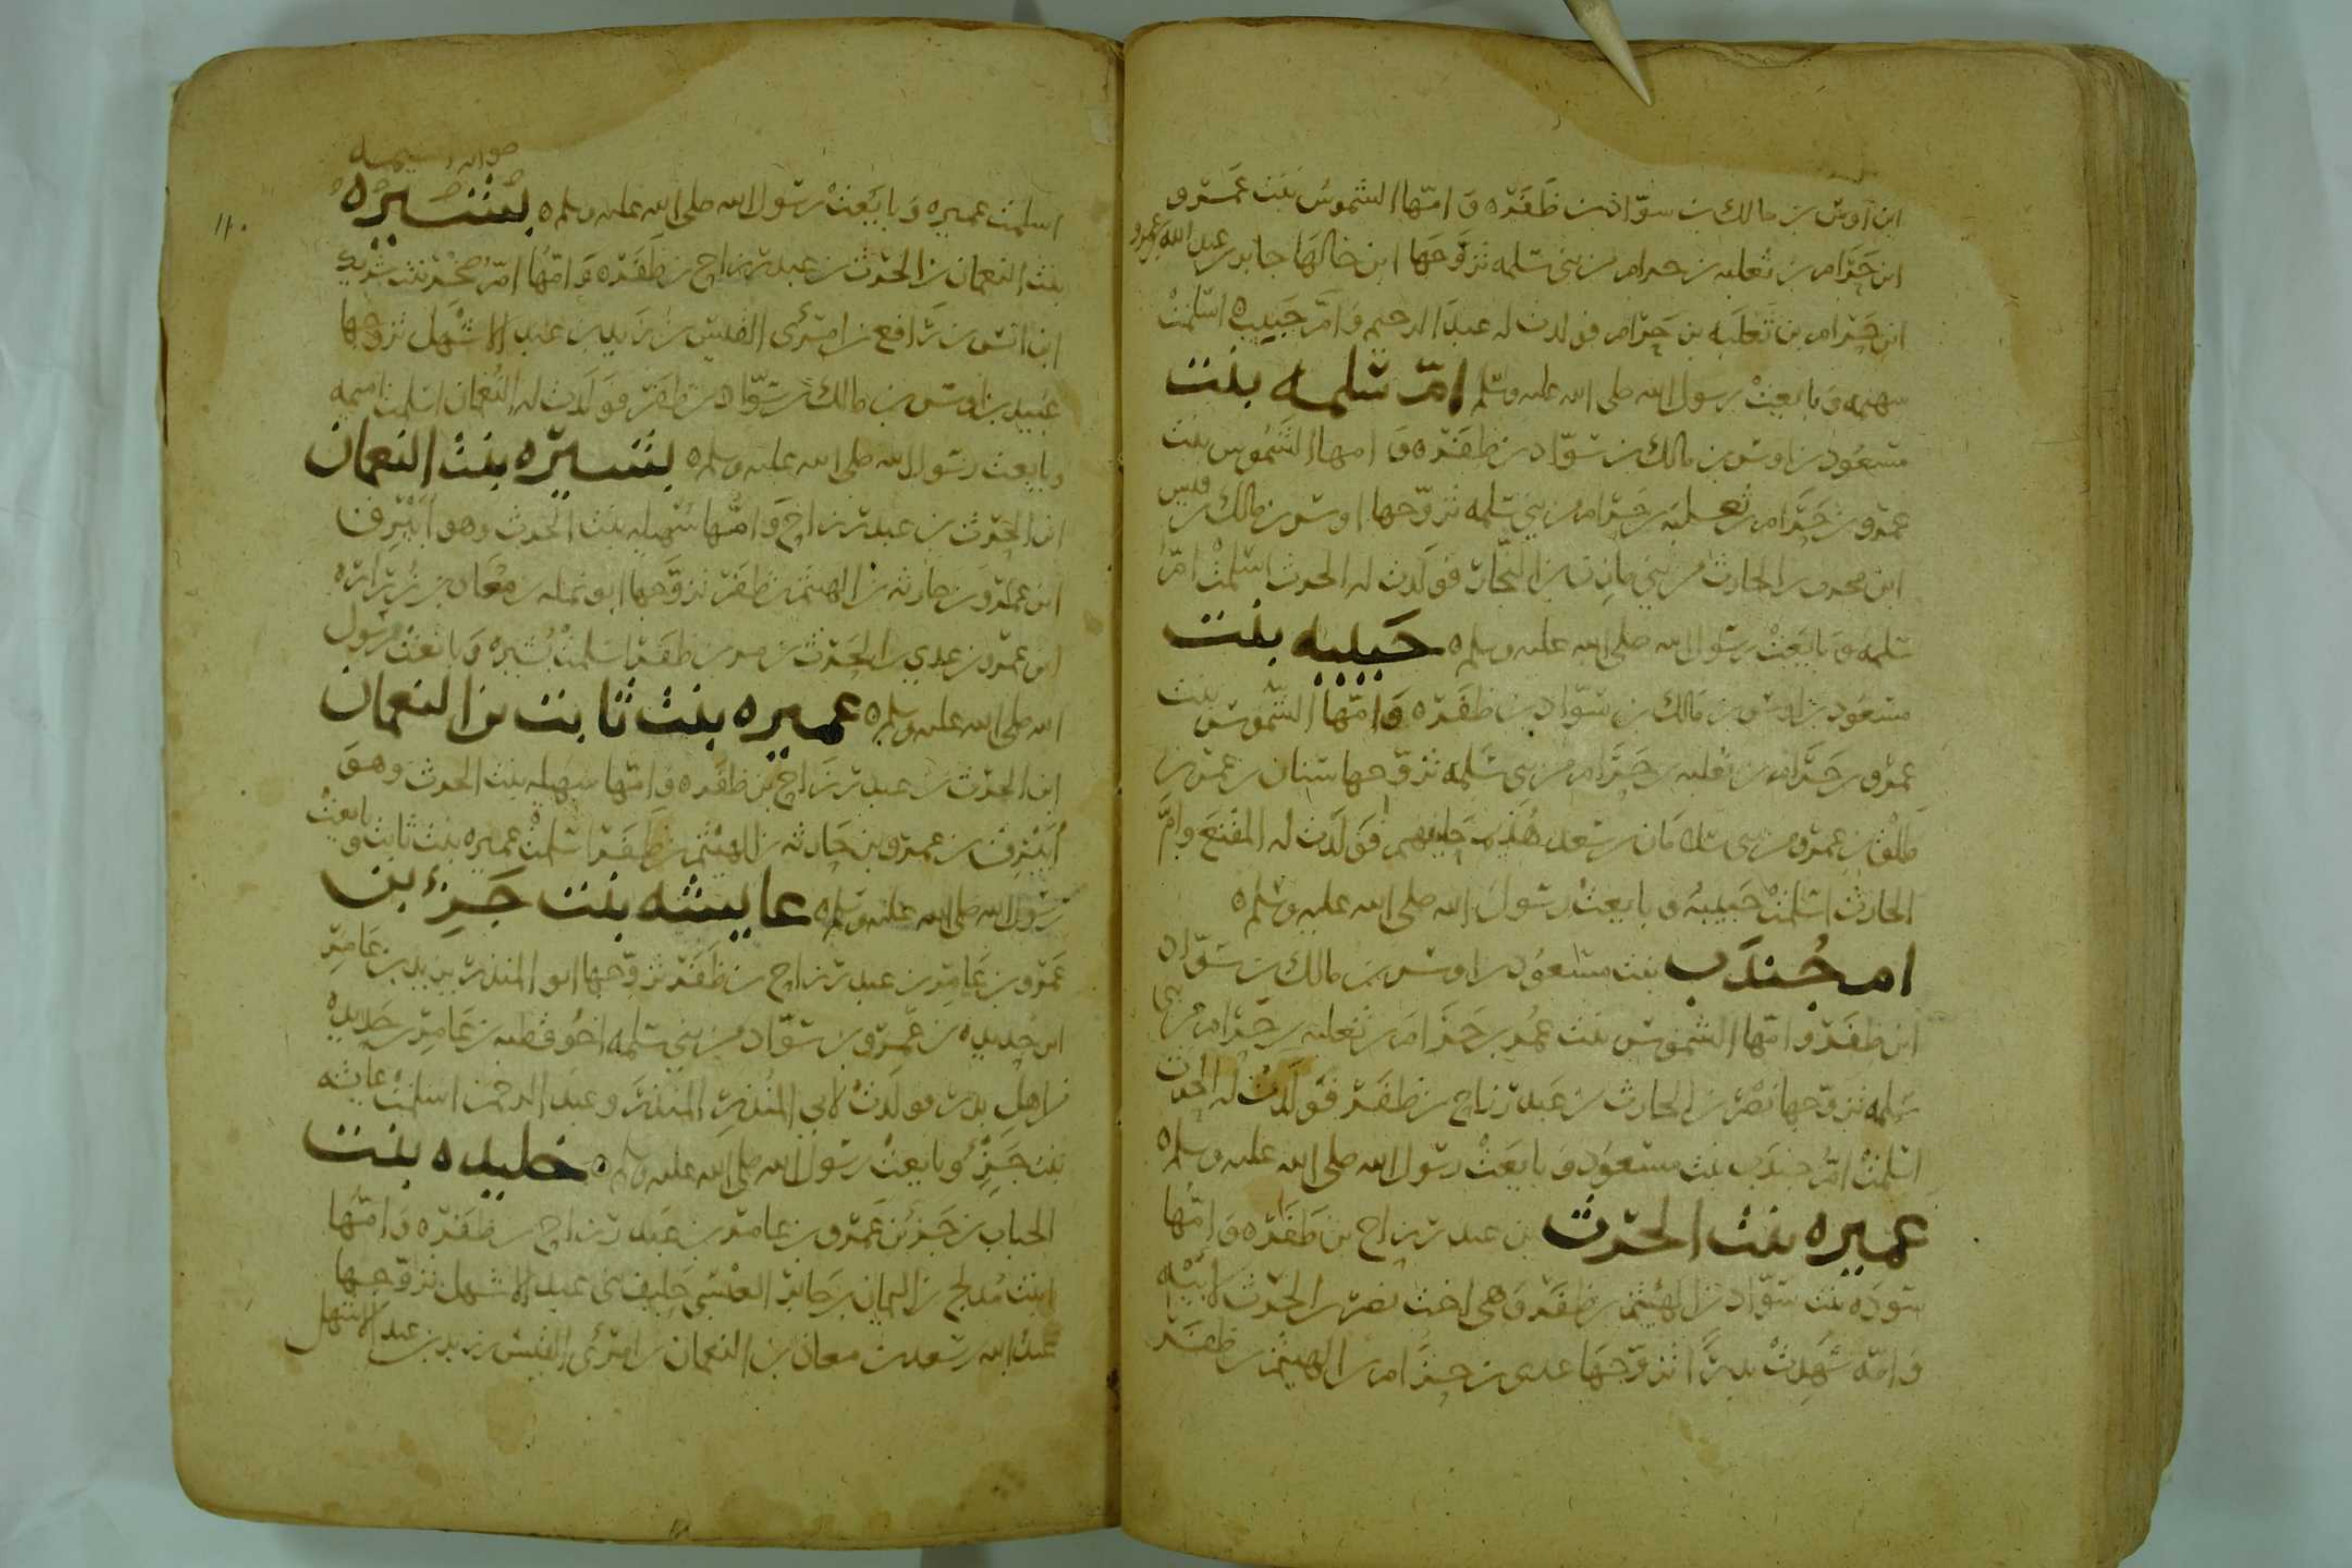 ابن اوس بن مالك بن سواد بن ظفر ٥ وامها الشموس بنت عمرو
ابن حرام بن ثعلبه بن حرام من بني سلمه تزوجها ابن خالها جابر بن عبد الله بن عمرو
ابن حرام بن ثعلبه بن حرام فولدت له عبد الرحيم وام حبيبه اسلمت
سهيمه وبايعت رسول الله صلى الله عليه وسلم ام سلمه بنت
مسعود بن اوس بن مالك بن سواد بن ظفر ٥ و امها الشموس بنت
عمرو بن حرام بن ثعلبه بن حرام من بني سلمه تزوجها اوس بن مالك بن قيس
ابن محرث بن الحارث من بني مازن بن النجار فولدت له الحرث اسلمت ام
سلمه وبايعت رسول الله صلى الله عليه وسلم ٥ حبيبه بنت
مسعود بن اوس بن مالك بن سواد بن ظفر ٥ وامها الشموس بنت
عمرو بن حرام بن ثعلبه بن حرام من بني سلمه تزوجها سنان بن عمرو بن
طلق بن عمرو من بني سلامان بن سعد هذيم حليفهم فولدت له المقنع وام
الحارث اسلمت حبيبه و بايعت رسول الله صلى الله عليه وسلم ٥
ام جندب بنت مسعود بن اوس بن مالك بن سواد
ابن ظفر وامها الشموس بنت عمرو بن حرام بن ثعلبه بن حرام من بني
سلمه تزوجها نصر بن الحارث بن عبد رزاح بن ظفر فولدت له الحرث
اسلمت ام جندب بنت مسعود و بايعت رسول الله صلى الله عليه وسلم ٥
عميره بنت الحرث بن عبد رزاح بن ظفر ٥ وامها
سوده بنت سواد بن الهيثم بن ظفر وهي اخت نصر بن الحرث لابيه
وامه شهدت بدرا تزوجها عدي بن حرام بن الهيثم بن ظفر
صوابه سميه
اسلمت عميره وبايعت رسول الله صلى الله عليه وسلم ٥ بشيره
١١٠
بنت النعمان بن الحرث بن عبد رزاح بن ظفر ٥ وامها ام صخر بنت شريك
ابن انس بن رافع بن امرئ القيس بن زيد بن عبد الاشهل تزوجها
عبيد بن اوس بن مالك بن سواد بن ظفر فولدت له النعمان اسلمت سميه
وبايعت رسول الله صلى الله عليه وسلم ٥ بشيره بنت النعمان
ابن الحرث بن عبد رزاح وامها سهيله بنت الحرث وهو ابيرق
ابن عمرو بن حارثه بن الهيثم بن ظفر تزوجها ابو نمله بن معاذ بن زراره
ابن عمرو بن عدي بن الحرث بن مر بن ظفر اسلمت بشيره وبايعت رسول
الله صلى الله عليه وسلم ٥ عميره بنت ثابت بن النعمان
ابن الحرث بن عبد رزاح بن ظفر ٥ وامها سهيله بنت الحرث وهو
ابيرق بن عمرو بن حارثه بن الهيثم بن ظفر اسلمت عميره بنت ثابت وبايعت
رسول الله صلى الله عليه وسلم ٥ عايشه بنت جزء بن
عمرو بن عامر بن عبد رزاح بن ظفر تزوجها ابو المنذر بن يزيد بن عامر
ابن حديده بن عمرو بن سواد من بني سلمه اخو قطبه بن عامر بن حديده
من اهل بدر فولدت لابي المنذر المنذر وعبد الرحمن اسلمت عايشه
بنت جزء وبايعت رسول الله صلى الله عليه وسلم ٥ خليده بنت
الحباب بن جزء بن عمرو بن عامر بن عبد رزاح بن ظفر ٥ وامها
ابنت مدلج بن اليمان بن جابر العبسي حليف بني عبد الاشهل تزوجها
عبد الله بن سعد بن معاذ بن النعمان بن امرئ القيس بن زيد بن عبد الاشهل